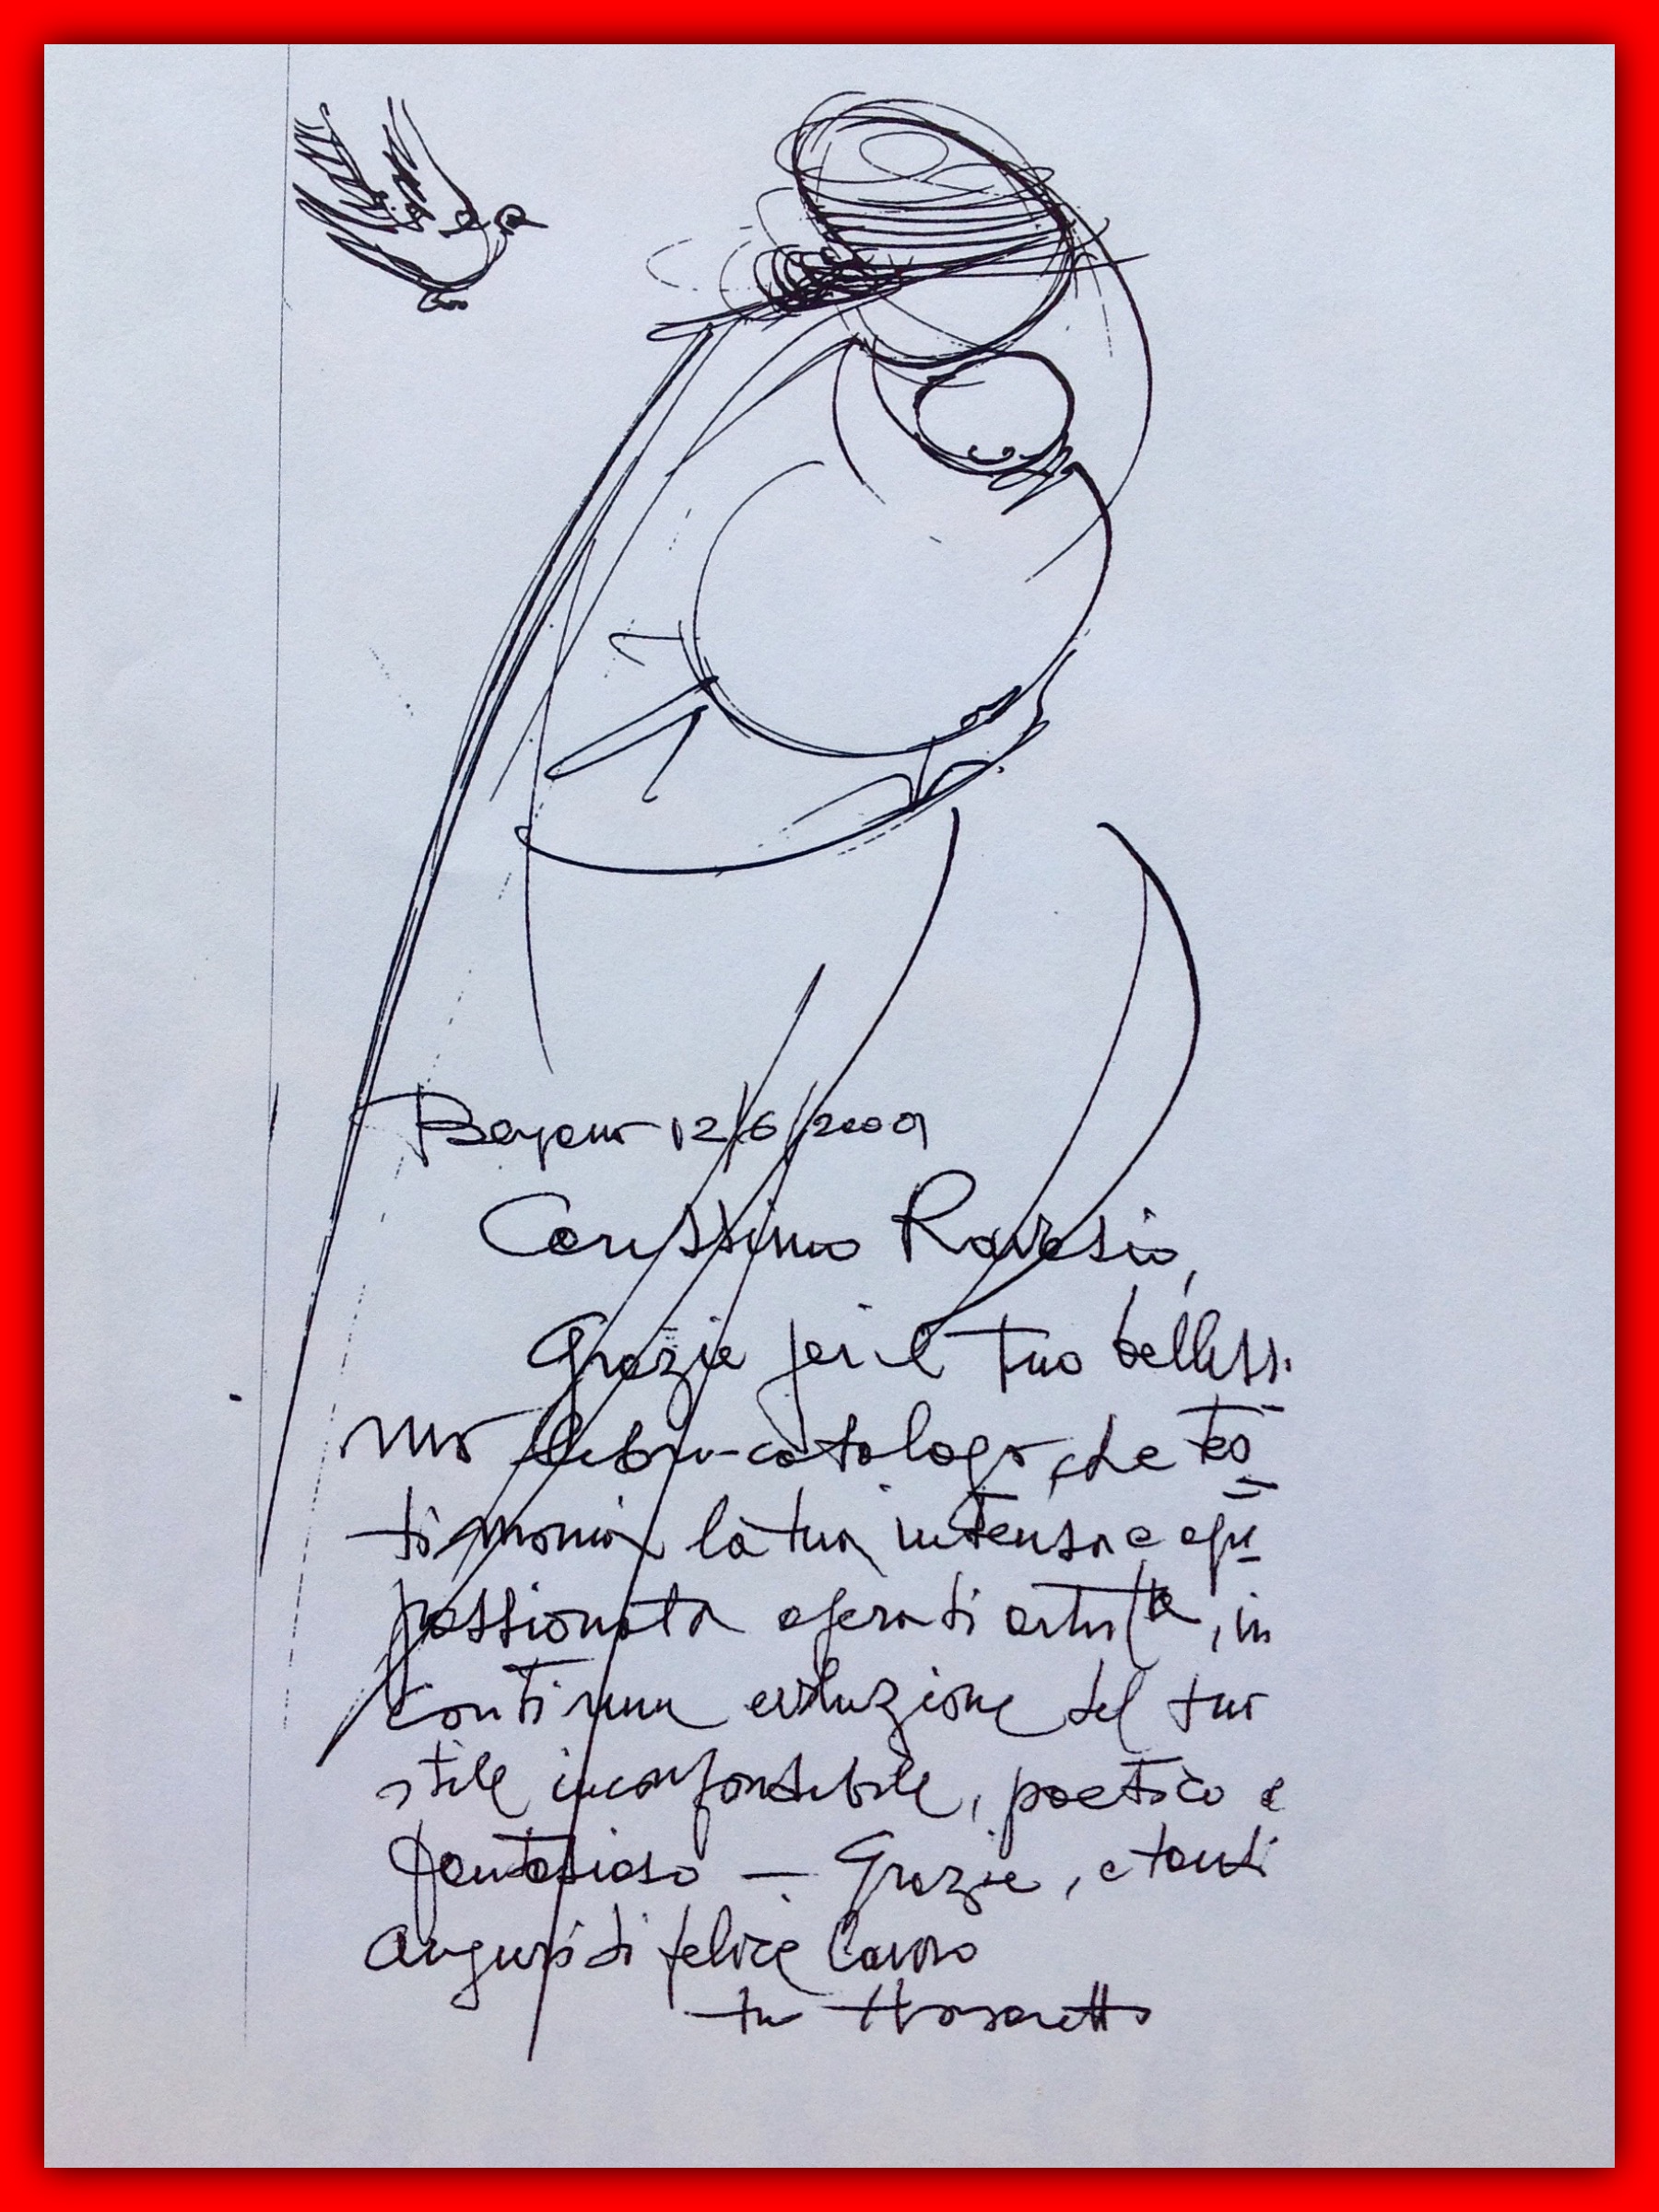 Bergamo 12/6/2009
Carissimo Ravasio,
Grazie per il tuo bellissi
mo libro-catalogo, che tes
timonia la tua intensa e ap
passionata opera di artista, in
continua evoluzione del tuo
stile inconfondibile, poetico e
fantasioso – Grazie, e tanti
auguri di felice lavoro
tuo